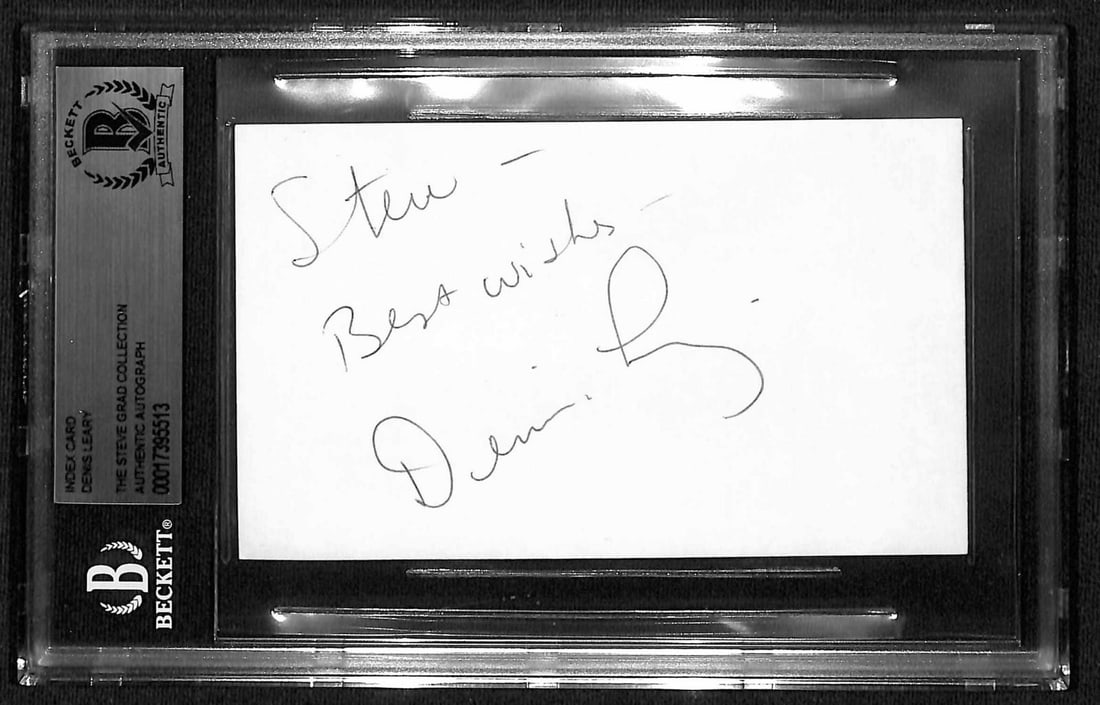 BECKETT
B
AUTHENTIC
INDEX CARD
DENIS LEARY
THE STEVE GRAD COLLECTION
AUTHENTIC AUTOGRAPH
00017395513
B
BECKETT®
Steve -
Best wishes -
Denis Leary